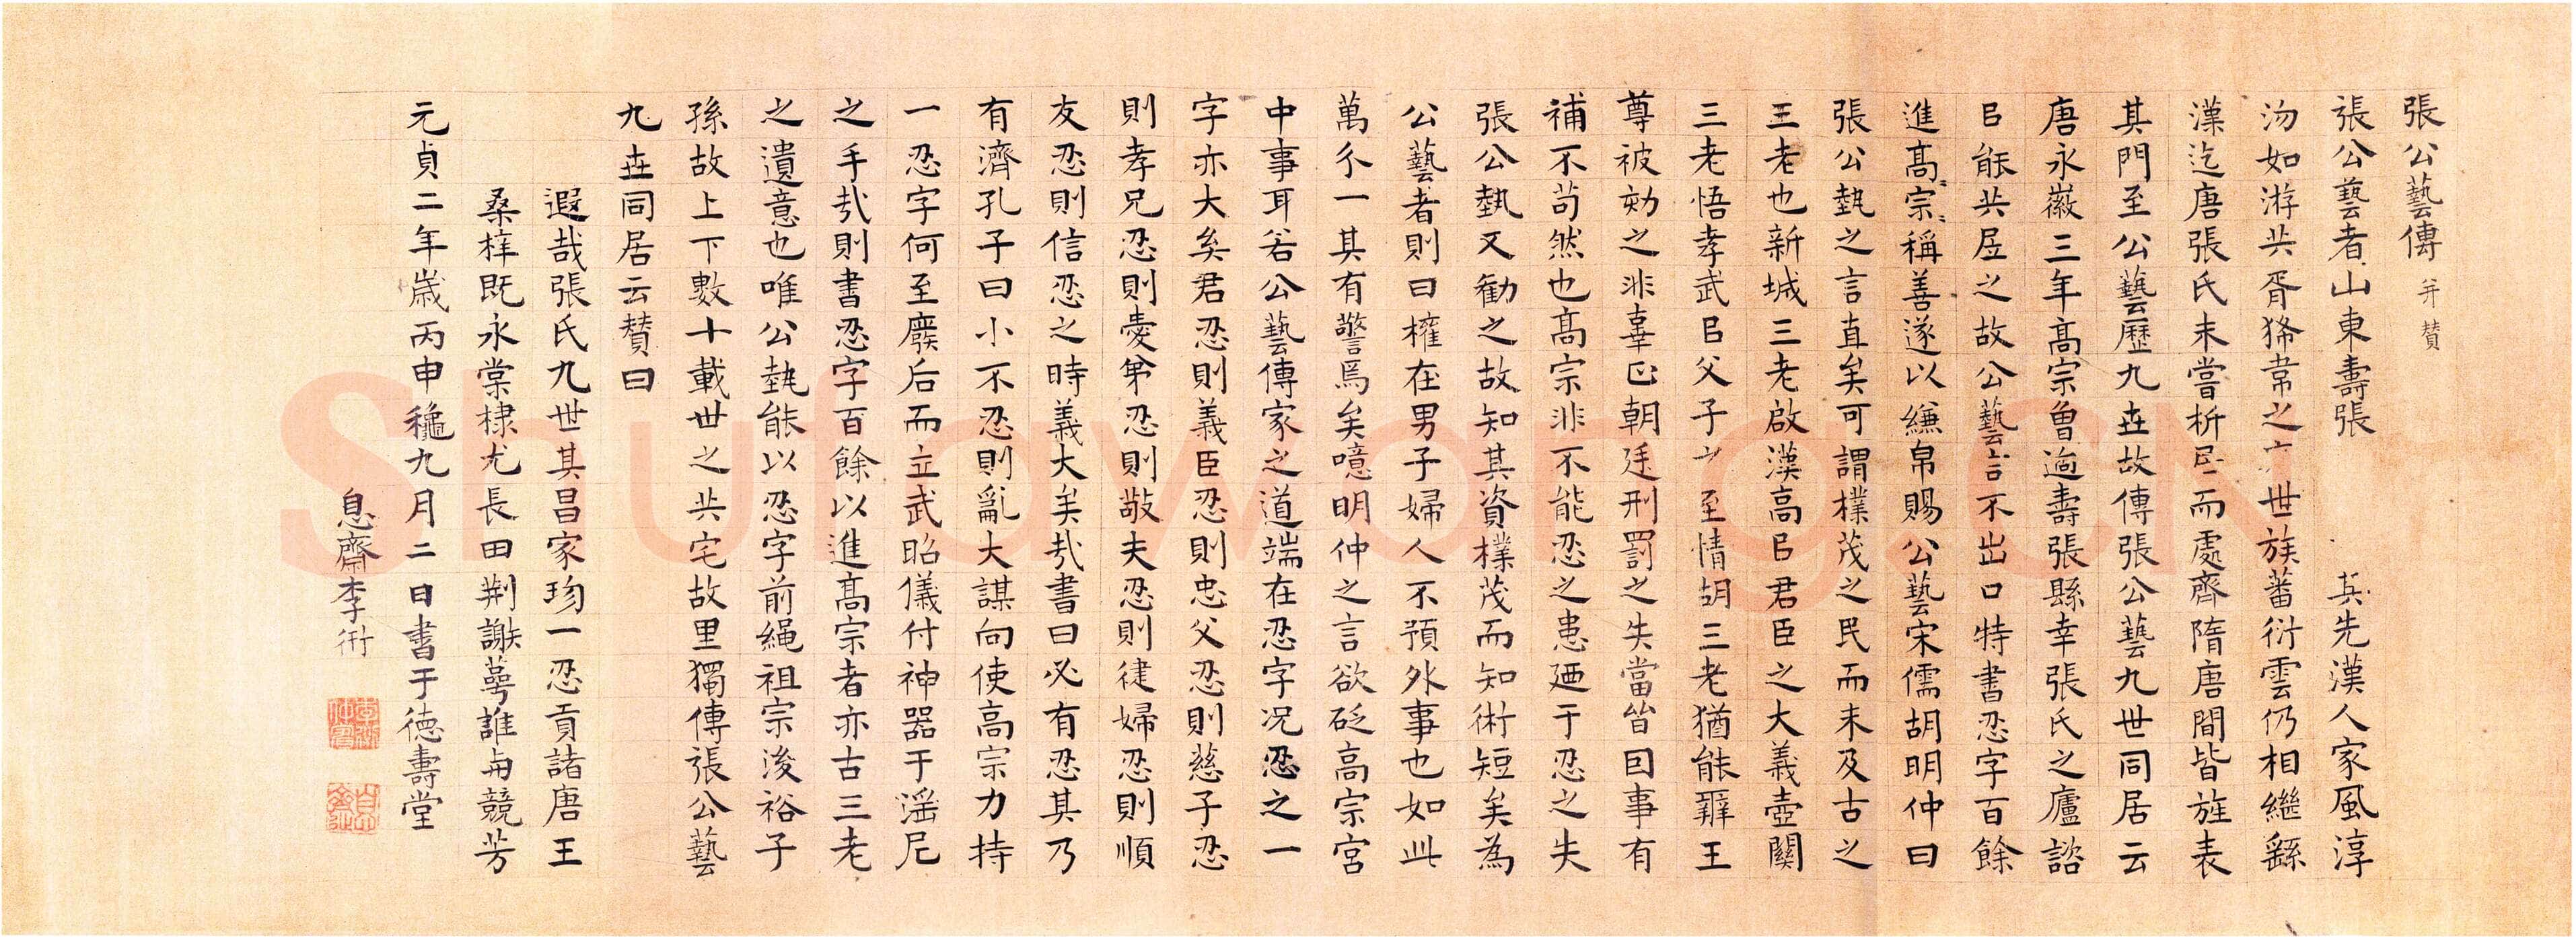 張公藝傳 并贊
張公藝者山東壽張 其先漢人家風淳
沕如游共胥狶韋之 世族蕃衍雲仍相繼繇
漢迄唐張氏未嘗析㞐而處齊隋唐間皆旌表
其門至公藝歷九世故傳張公藝九世同居云
唐永徽三年高宗魯過壽張縣幸張氏之廬諮
㠯能共居之故公藝言不出口特書忍字百餘
進高宗高宗稱善遂以縑帛賜公藝宋儒胡明仲曰
張公藝之言直矣可謂樸茂之民而未及古之
王老也新城三老啟漢高㠯君臣之大義壺關
三老悟孝武㠯父子之至情胡三老猶能辭王
尊被劾之非辜正朝廷刑罰之失當皆因事有
補不苟然也高宗非不能忍之患廼于忍之失
張公藝又勸之故知其資樸茂而知術短矣為
公藝者則曰權在男子婦人不預外事也如此
萬分一其有警焉矣噫明仲之言欲砭高宗宮
中事耳若公藝傳家之道端在忍字况忍之一
字亦大矣君忍則義臣忍則忠父忍則慈子忍
則孝兄忍則愛弟忍則敬夫忍則徤婦忍則順
友忍則信忍之時義大矣哉書曰必有忍其乃
有濟孔子曰小不忍則亂大謀向使高宗力持
一忍字何至廢后而立武昭儀付神器于滛尼
之手哉則書忍字百餘以進高宗者亦古三老
之遺意也唯公藝能以忍字前繩祖宗浚裕子
孫故上下數十載世之共宅故里獨傳張公藝
九世同居云贊曰
遐哉張氏九世其昌家珎一忍貢諸唐王
桑梓既永棠棣尤長田荆謝萼誰与競芳
元貞二年歲丙申穐九月二日書于德壽堂
息齋李衎